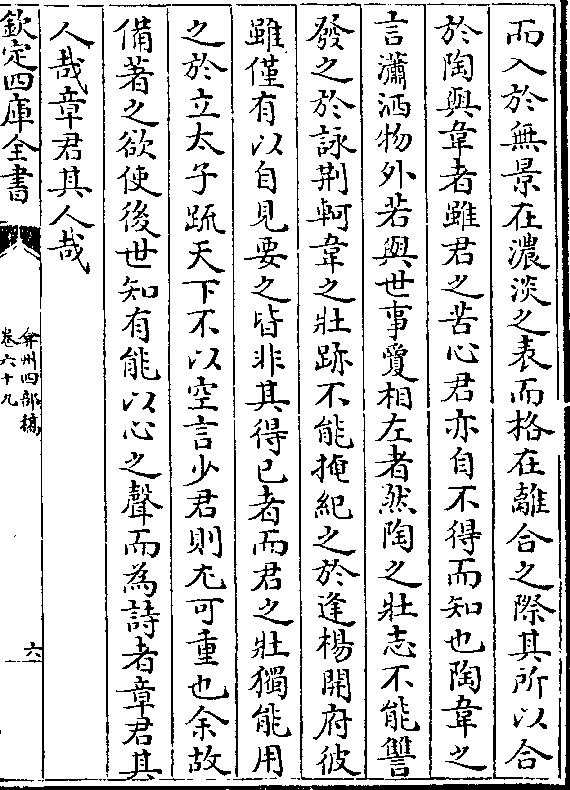 而入於無景在濃淡之表而格在離合之際其所以合
於陶與韋者雖君之苦心君亦自不得而知也陶韋之
言瀟洒物外若與世事夐相左者然陶之壯志不能讐
發之於詠荆軻韋之壯跡不能掩紀之於逢楊開府彼
雖僅有以自見要之皆非其得已者而君之壯獨能用
之於立太子䟽天下不以空言少君則尤可重也余故
備著之欲使後世知有能以心之聲而為詩者章君其
人哉章君其人哉
欽定四庫全書
弇州四部稿
卷六十九
六